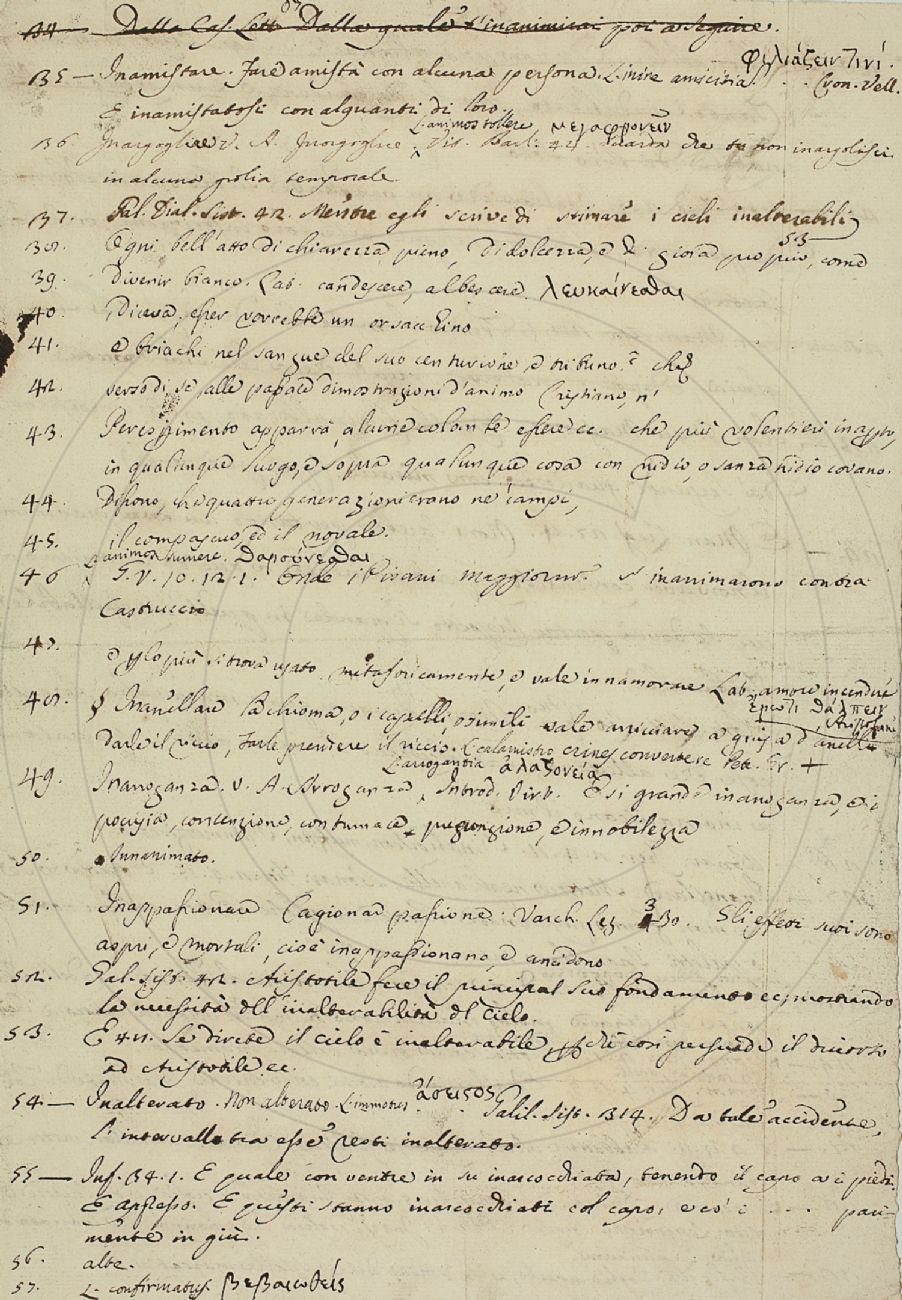 134 — Dalla Cas. Lett. 87 Dalla quale s'inanimirai poi a seguire.
135 — Inamistare. Fare amistà con alcuna persona. L. inire amicitia. φιλιάζειν τινί. Cron. Vell.
E inamistatosi con alquanti di loro.
L. animos tollere μεγαφρονεῖν
136. Inorgogliare V. A. Inorgoglire. Guarda che tu non inorgolisci
in alcuna gloria temporale
137. Gal. Dial. Sist. 42. Mentre egli scrive di stimare i cieli inalterabili
38. Ogni bell'atto di chiarezza pieno, Di dolcezza, e di gioia può più, come 53
39. Divenir bianco. Lat. candescere, albescere. λευκαίνεσθαι
40. Diceva, esser vorrebbe un orsacchino
41. e briachi nel sangue del suo centurione, e tribuno. che
42. verso di se, alle dimostrazioni d'animo Cristiano, n'
43. apparrà, alcune colombe essere ec. che più volentieri in
in qualunque luogo, e sopra qualunque cosa con nidio, o sanza nidio covano.
44. Dissono, che quattro generazioni erano ne' campi,
45. il compascuo, ed il novale.
L. animos sumere. θαρσύνεσθαι
46 G. V. 10. 12. 1. Onde i Pisani maggiorm. s'inanimarono contra
Castruccio
47. e più si trova usato metaforicamente, e vale innamorare Lat. amore incendere
ἔρωτι θάλπειν
48. § Inanellare la chioma, o i capelli, o simili vale arricciare a guisa d'anella
Darle il riccio, Farle prendere il riccio. L. calamistro crines convertere Petr. Fr. +
L. arrogantia ἀλαζονεία
49. Inarroganza. V. A. Arroganza, Introd. Virt. E si grande inarroganza, e i
pocrisia, contenzione, contumace, presonzione, e innobilezza
50. Innanimato.
51. Inappassionare Cagionar passione. Varch. Lez. 330. Gli effetti suoi sono
aspri, e mortali, cioè inappassionano e ancidono
52. Gal. Sist. 42. Aristotile fece il principal suo fondamento ec. mostrando
la necessità dell'inalterabilità del Cielo.
53. E 42. Se direte il cielo è inalterabile, perchè così persuade il discorso
ad Aristotile ec.
54 — Inalterato. Non alterato. L. immotus ἄσειστος Galil. Sist. 314. Da tale accidente,
l'intervallo tra esse resti inalterato.
55 — Inf. 34. 1. E quale con ventre in su inarcocchiata, tenendo il capo a i piedi.
E appresso. E questi stanno inarcocchiati col capo, e co' i . . . pari-
mente in giù.
56. alte.
57. L. confirmatus. βεβαιωθείς